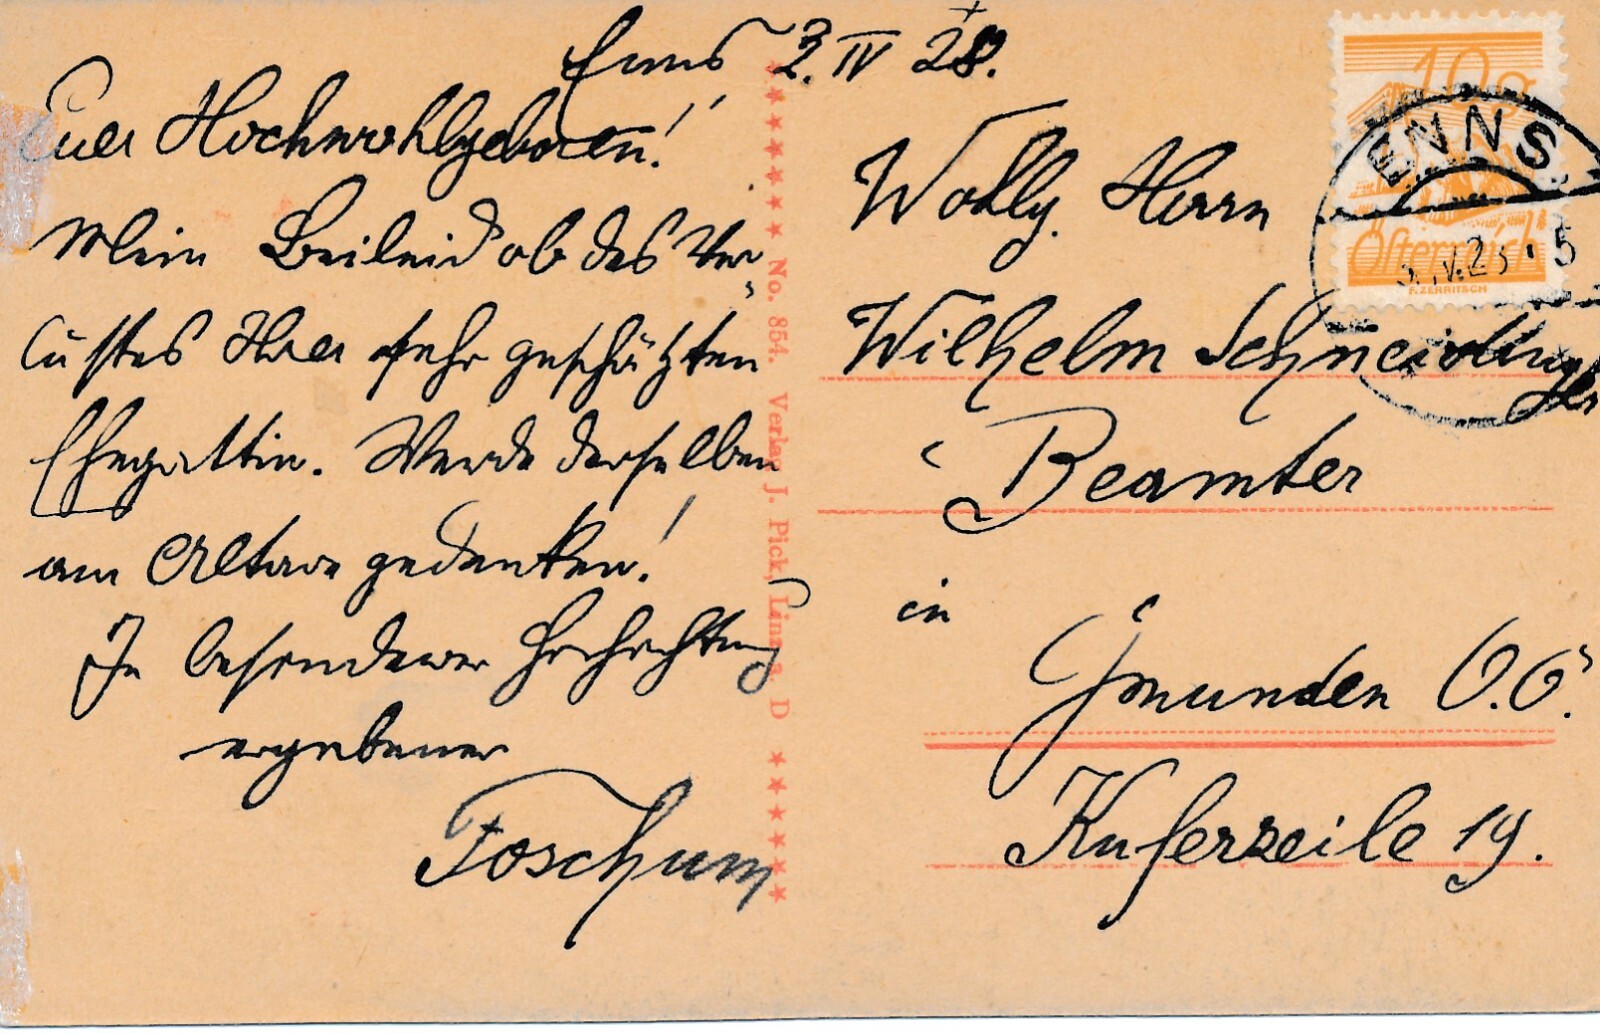 Enns 2. IV 28.
Euer Hochwohlgeboren!
Mein Beileid ob des Ver-
lustes Ihrer sehr geschätzten
Ehegattin. Werde derselben
am Altare gedenken!
In besonderer Hochachtung
ergebener
Foschum
No. 854. Verlag J. Pick, Linz a. D
10g
Österreich
F. ZERRITSCH
ENNS
Wohlg. Herrn
Wilhelm Schneidinger
Beamter
in
Gmunden O.Ö.
Kuferzeile 19.